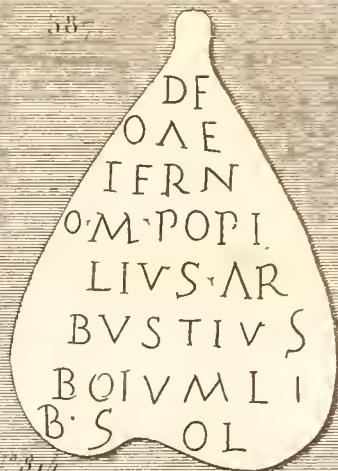 587
DF
OΛE
IFRN
O·M·POPI
LIVS·ΛR
BVSTIVS
BOIVMLI
B·S OL